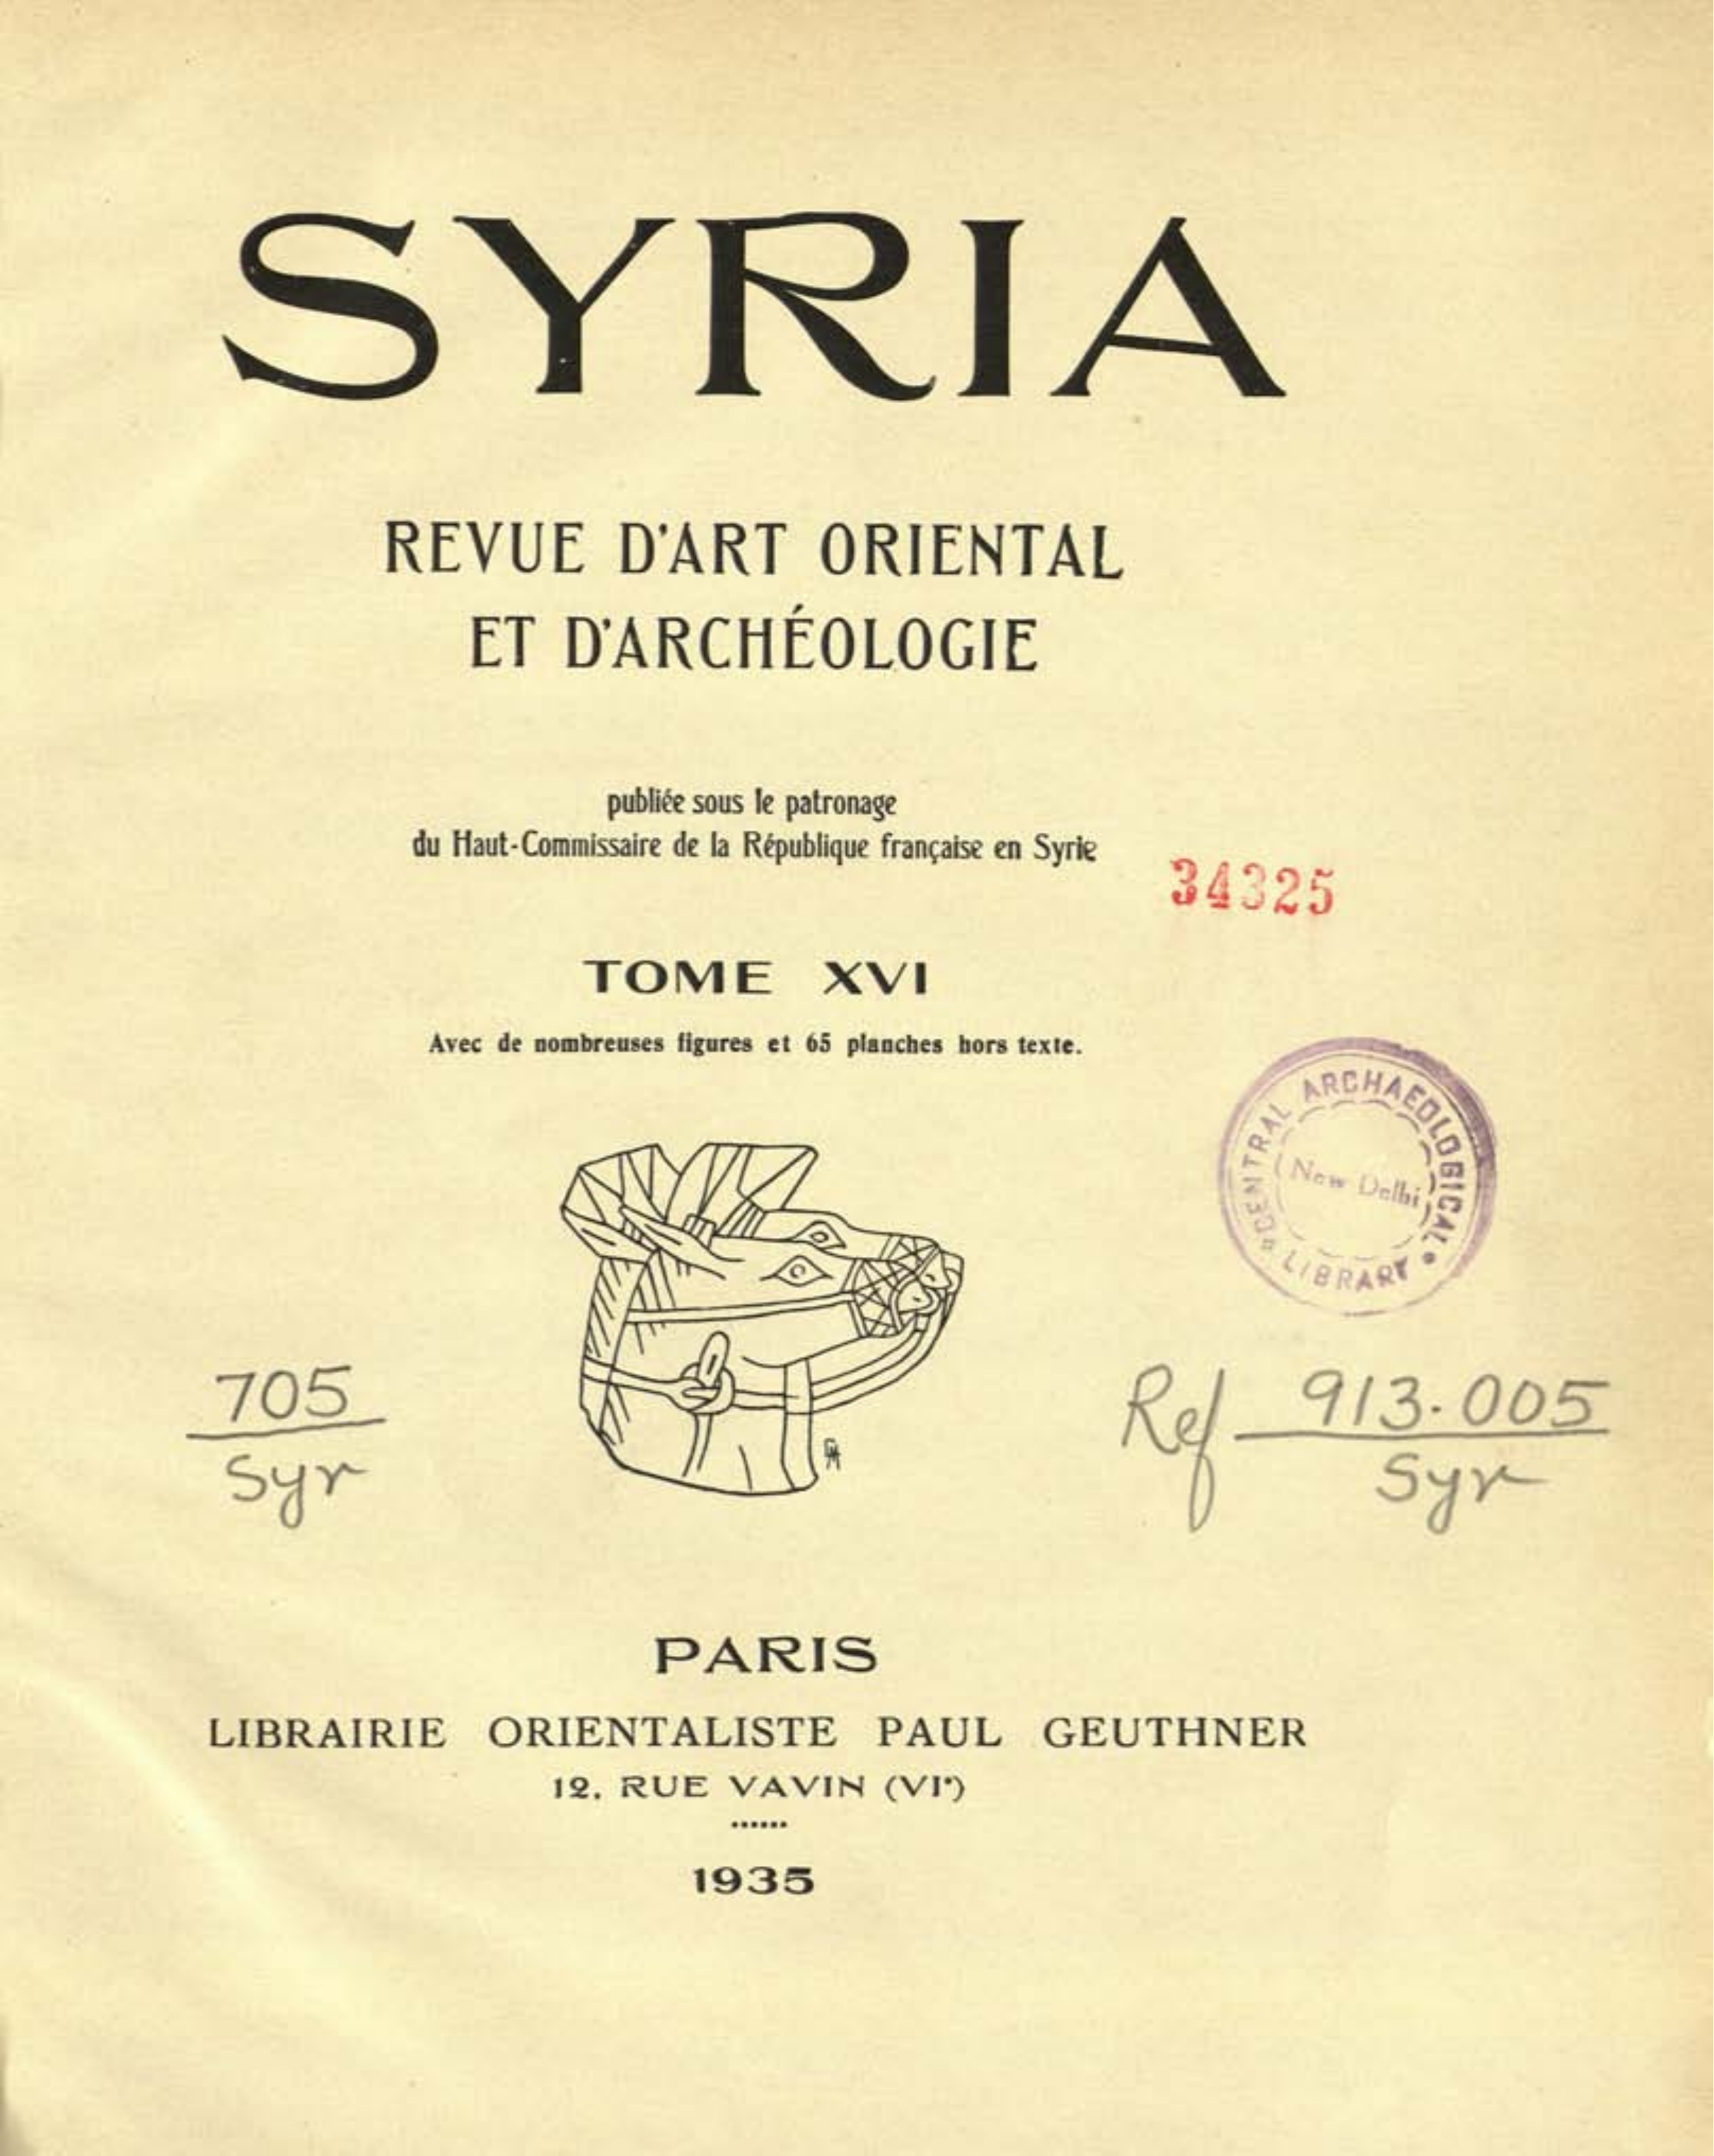 SYRIA
REVUE D'ART ORIENTAL
ET D'ARCHÉOLOGIE
publiée sous le patronage
du Haut-Commissaire de la République française en Syrie
34325
TOME XVI
Avec de nombreuses figures et 65 planches hors texte.
CENTRAL ARCHAEOLOGICAL
New Delhi
LIBRARY
705
Syr
Ref 913.005
Syr
PARIS
LIBRAIRIE ORIENTALISTE PAUL GEUTHNER
12, RUE VAVIN (VIe)
1935